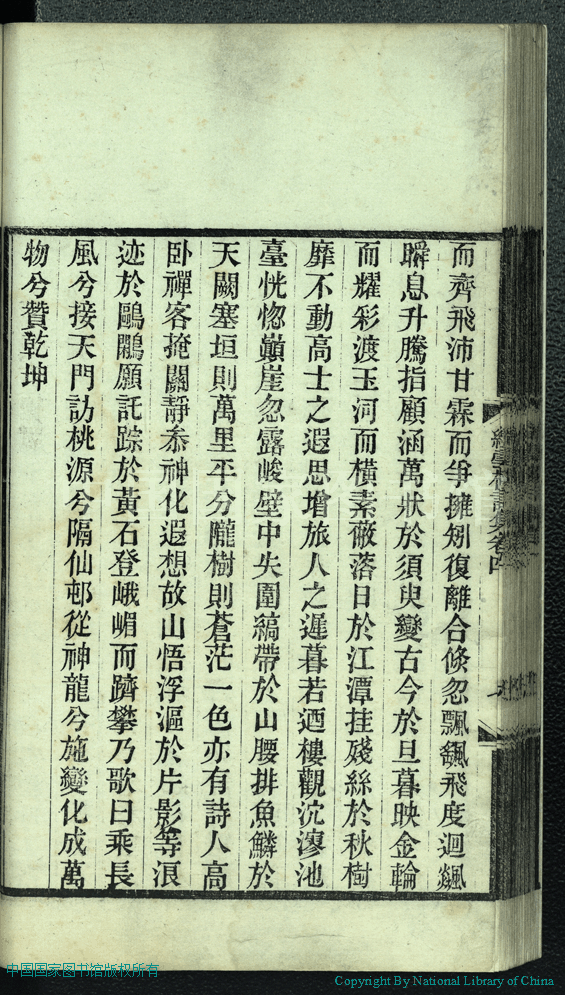 而齊飛沛甘霖而爭擁矧復離合倏忽飄颻飛度迴飇
瞬息升騰指顧涵萬狀於須臾變古今於旦暮映金輪
而耀彩渡玉河而橫素蔽落日於江潭挂殘絲於秋樹
靡不動高士之遐思增旅人之遲暮若迺樓觀沉漻池
臺恍惚巔崖忽露峻壁中失圍縞帶於山腰排魚鱗於
天闕塞垣則萬里平分隴樹則蒼茫一色亦有詩人高
卧禪客掩關靜叅神化遐想故山悟浮漚於片影等浪
迹於鷗鷴願託踪於黃石登峨嵋而躋攀乃歌曰乘長
風兮接天門訪桃源兮隔仙邨從神龍兮施變化成萬
物兮贊乾坤
中国国家图书馆版权所有
Copyright By National Library of China